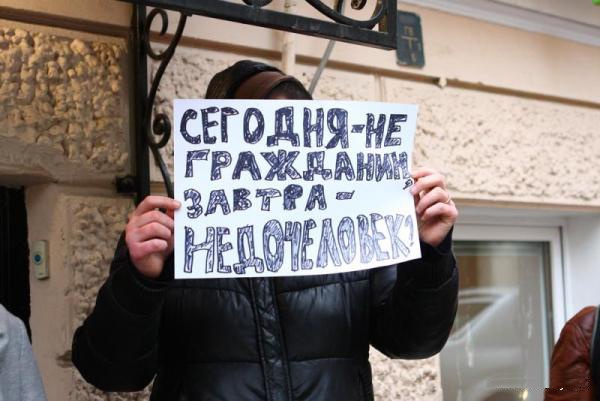 СЕГОДНЯ-НЕ
ГРАЖДАНИН,
ЗАВТРА-
НЕДОЧЕЛОВЕК?